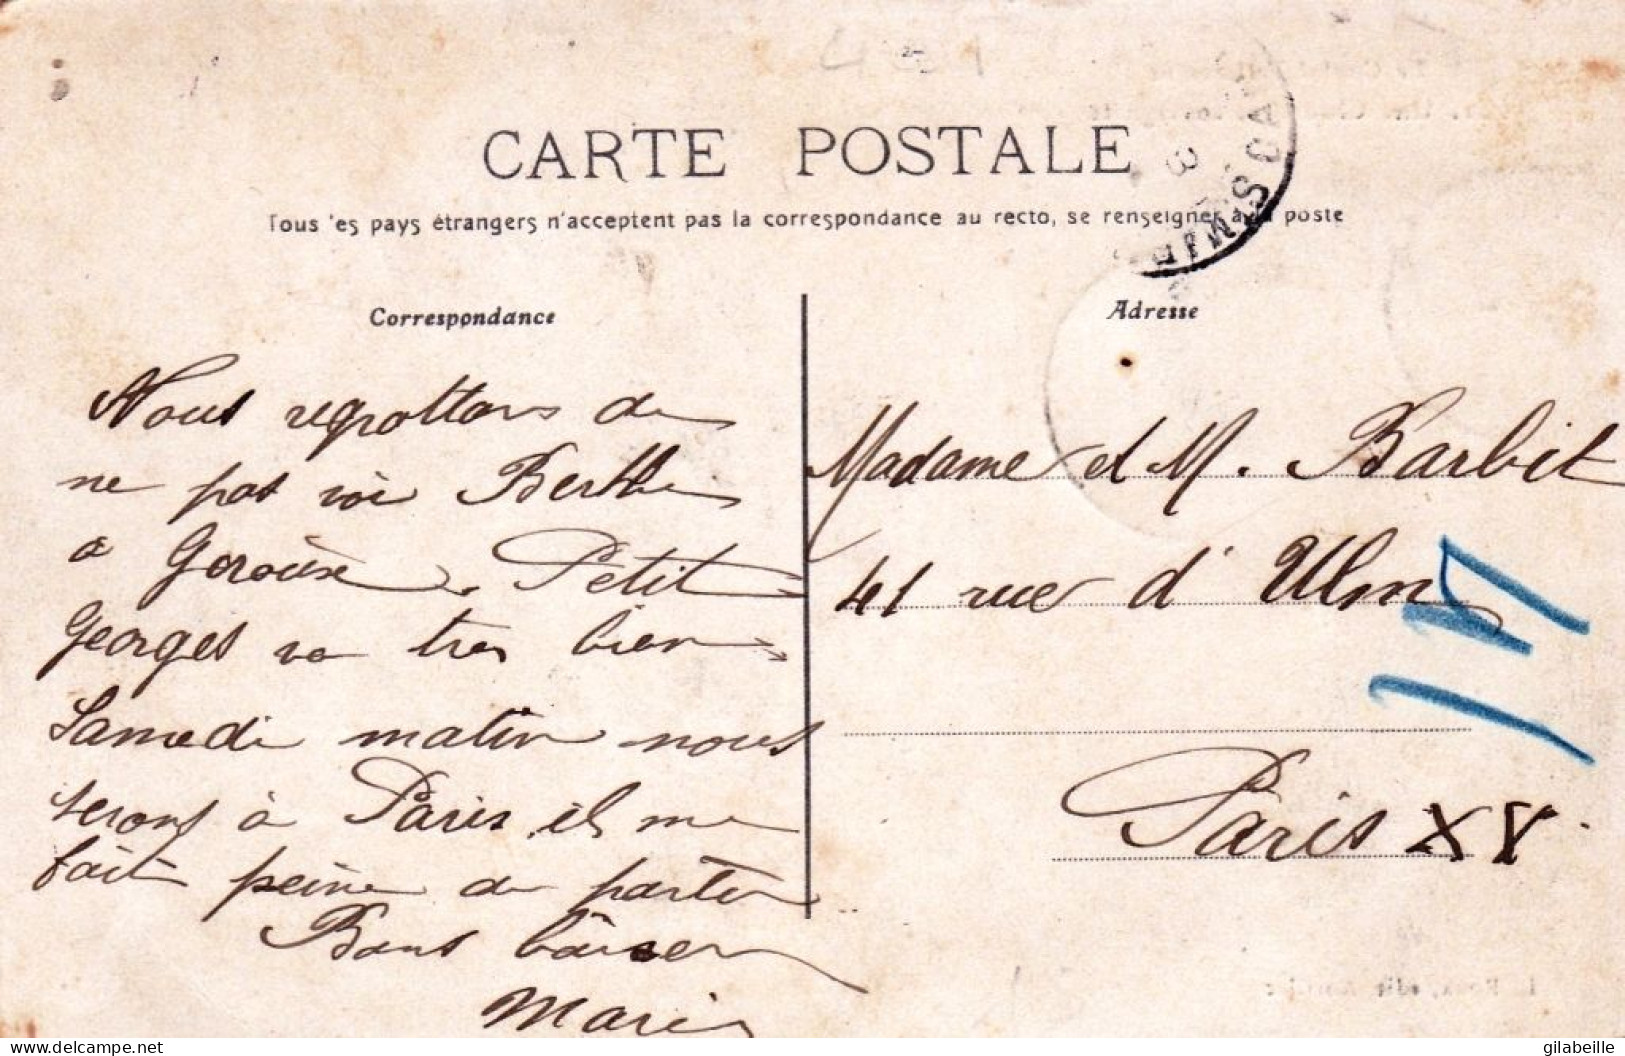 CARTE POSTALE
Tous les pays étrangers n'acceptent pas la correspondance au recto, se renseigner à la poste
Correspondance
Nous regrottons de
ne pas voir Berthe
a
Petit
Georges va tres bien
Samedi matin nous
serons à Paris il me
fait peine de partir
Bons baiser
Marie
Adresse
Madame et M. Barbit
41 rue d'Ulm
Paris XV
gilabeille